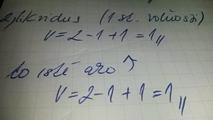 (1 st. voľnosti)
v = 2 - 1 + 1 = 1,,
to isté ako ↑
v = 2 - 1 + 1 = 1,,